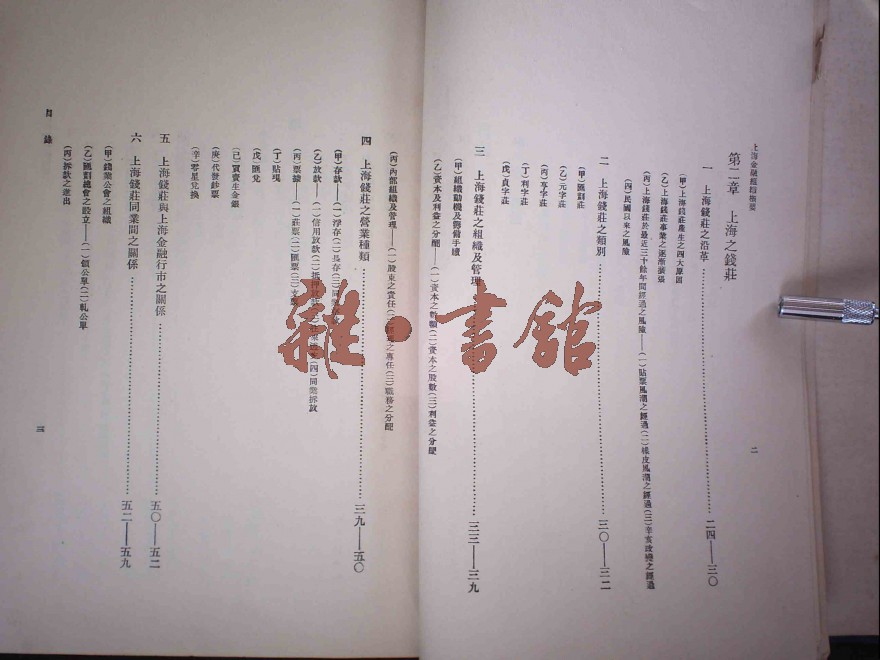 上海金融組織概要
二
第二章 上海之錢莊
一 上海錢莊之沿革 二四——三〇
(甲)上海錢莊產生之四大原因
(乙)上海錢莊事業之逐漸演張
(丙)上海錢莊於最近三十餘年間經過之風險——(一)貼票風潮之經過(二)橡皮風潮之經過(三)辛亥政變之經過
(四)民國以來之風險
二 上海錢莊之類別 三〇——三二
(甲)匯劃莊
(乙)元字莊
(丙)亨字莊
(丁)利字莊
(戊)貞字莊
三 上海錢莊之組織及管理 三三——三九
(甲)組織動機及籌備手續
(乙)資本及利益之分配——(一)資本之 (二)資本之股數(三)利益之分配
(丙)內部組織及管理——(一)股東之責任(二) 之專任(三)職務之分配
四 上海錢莊之營業種類 三九——五〇
(甲)存款——(一)浮存(二)長存(三)同業
(乙)放款——(一)信用放款(二)抵押放款 (四)同業拆放
(丙)票據——(一)莊票(二)匯票(三)支票
(丁)貼現
(戊)匯兌
(己)買賣生金銀
(庚)代發鈔票
(辛)零星兌換
五 上海錢莊與上海金融行市之關係 五〇——五二
六 上海錢莊同業間之關係 五二——五九
(甲)錢業公會之組織
(乙)匯劃總會之設立——(一)領公單(二)軋公單
(丙)拆款之進出
目錄
三
雜·書館